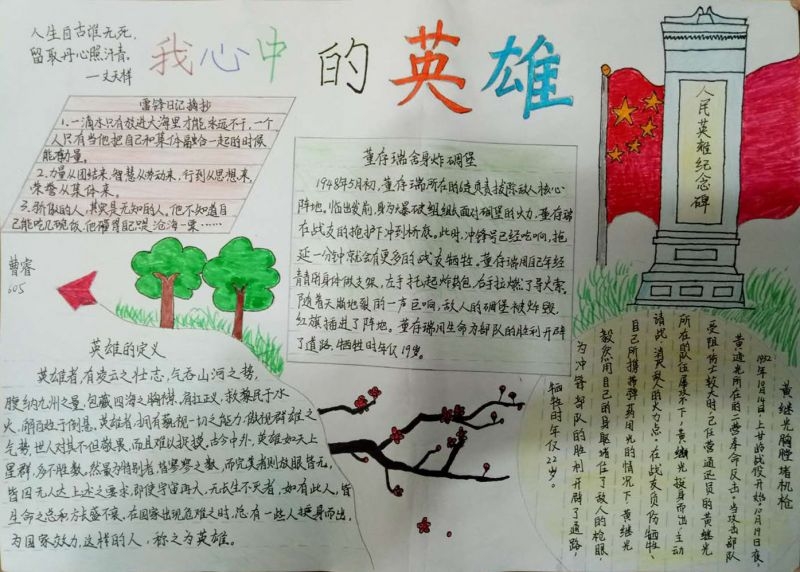 人生自古谁无死,
留取丹心照汗青
—文天祥
我心中的英雄
雷锋日记摘抄
1.一滴水只有放进大海里才能永远不干,一个
人只有当他把自己和集体融合一起的时候
能有力量。
2.力量从团结来,智慧从劳动来,行到从思想来,
荣誉从集体来。
3.骄傲的人,其实是无知的人。他不知道自
己能吃几碗饭,他
沧海一粟……
曹睿
605
董存瑞舍身炸碉堡
1948年5月初,董存瑞所在的连负责拔除敌人核心
阵地。临出发前,身为爆破组组长面对碉堡的火力,董存瑞
在战友的掩护下冲到桥底。此时,冲锋号已经吹响,拖
延一分钟就会有更多的战友牺牲。董存瑞用自己年轻
的身体做支架,左手托起炸药包,右手拉燃了导火索。
随着天崩地裂的一声巨响,敌人的碉堡被炸毁,
红旗插进了阵地。董存瑞用生命为部队的胜利开辟
了道路,牺牲时年仅19岁。
人民英雄纪念碑
英雄的定义
英雄者,有凌云之壮志,气吞山河之势,
腹纳九州之量,包藏四海之胸襟,肩扛正义,救黎民于水
火,解百姓于倒悬。英雄者,拥有藐视一切之能力,傲视群雄之
气势,世人对其不但敬畏,而且难以捉摸,古今中外,英雄如天上
星群,多不胜数,然最为特别者,皆寥寥之数,而完美者则放眼皆无。
皆因无人达上述之要求,即使宇宙再大,无长生不灭者,如有此人,皆
生命之总和方去盛不衰。在国家出现危难之时,总有一些人挺身而出,
为国家效力,这样的人,称之为英雄。
黄继光胸膛堵机枪
1952年10月14日,上甘岭战役开始。10月19日夜,
黄继光所在的二营奉命反击。当攻击部队
受阻,伤亡较大时,已任营通迅员的黄继光
所在的队伍屡攻不下,黄继光挺身而出,主动
请战,消灭敌人的火力点。在战友负伤牺牲,
自己所携带弹药用光的情况下,黄继光
毅然用自己的身躯堵住了敌人的枪眼,
为冲锋部队的胜利开辟了道路,
牺牲时年仅22岁。